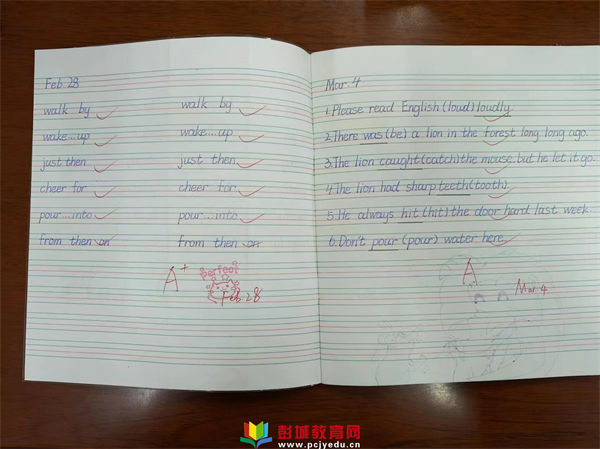 Feb 28
walk by walk by
wake...up wake...up
just then just then
cheer for cheer for
pour...into pour...into
from then on from then on
A+
perfect
Feb 28
Mar. 4
1. Please read English (loud) loudly.
2. There was (be) a lion in the forest long long ago.
3. The lion caught (catch) the mouse, but he let it go.
4. The lion had sharp teeth (tooth).
5. He always hit (hit) the door hard last week.
6. Don't pour (pour) water here.
A
Mar. 4
彭城教育网
www.pcjyedu.cn